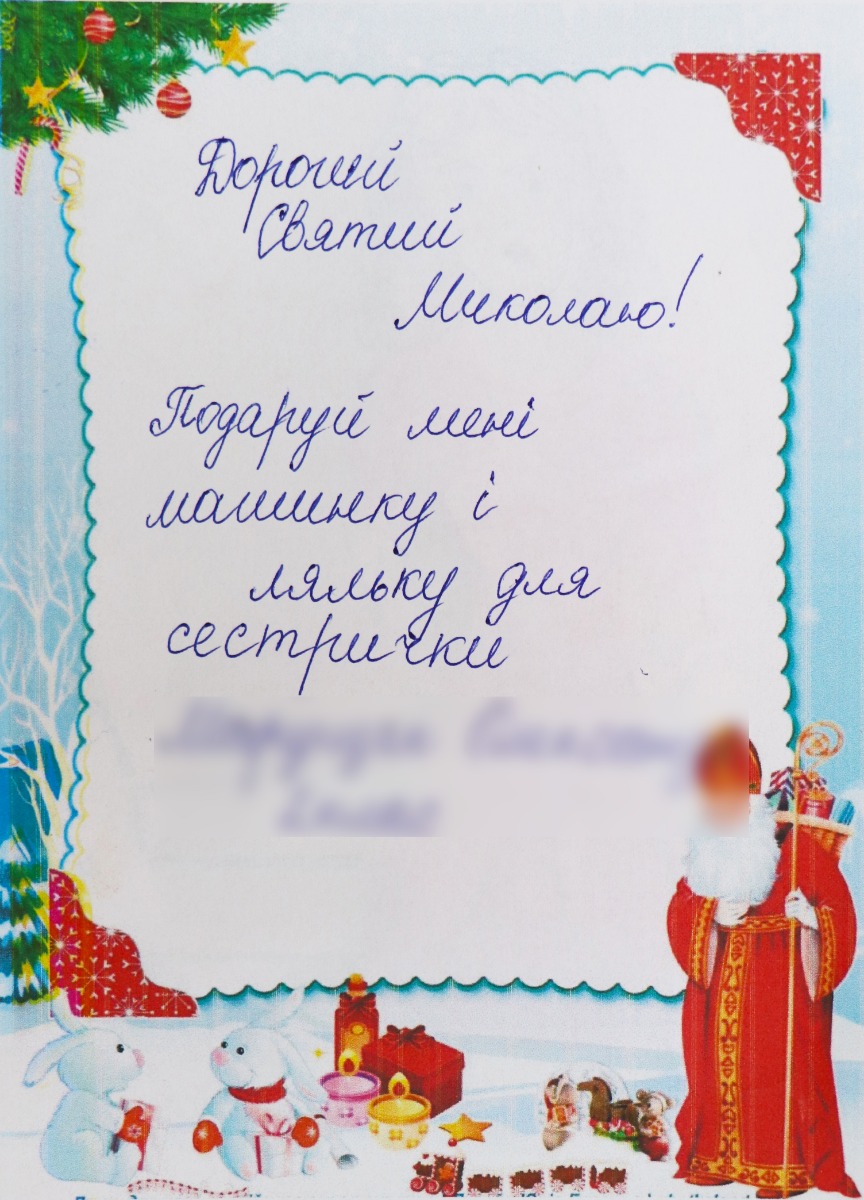 Дорогий
Святий
Миколаю!
Подаруй мені
машинку і
ляльку для
сестрички